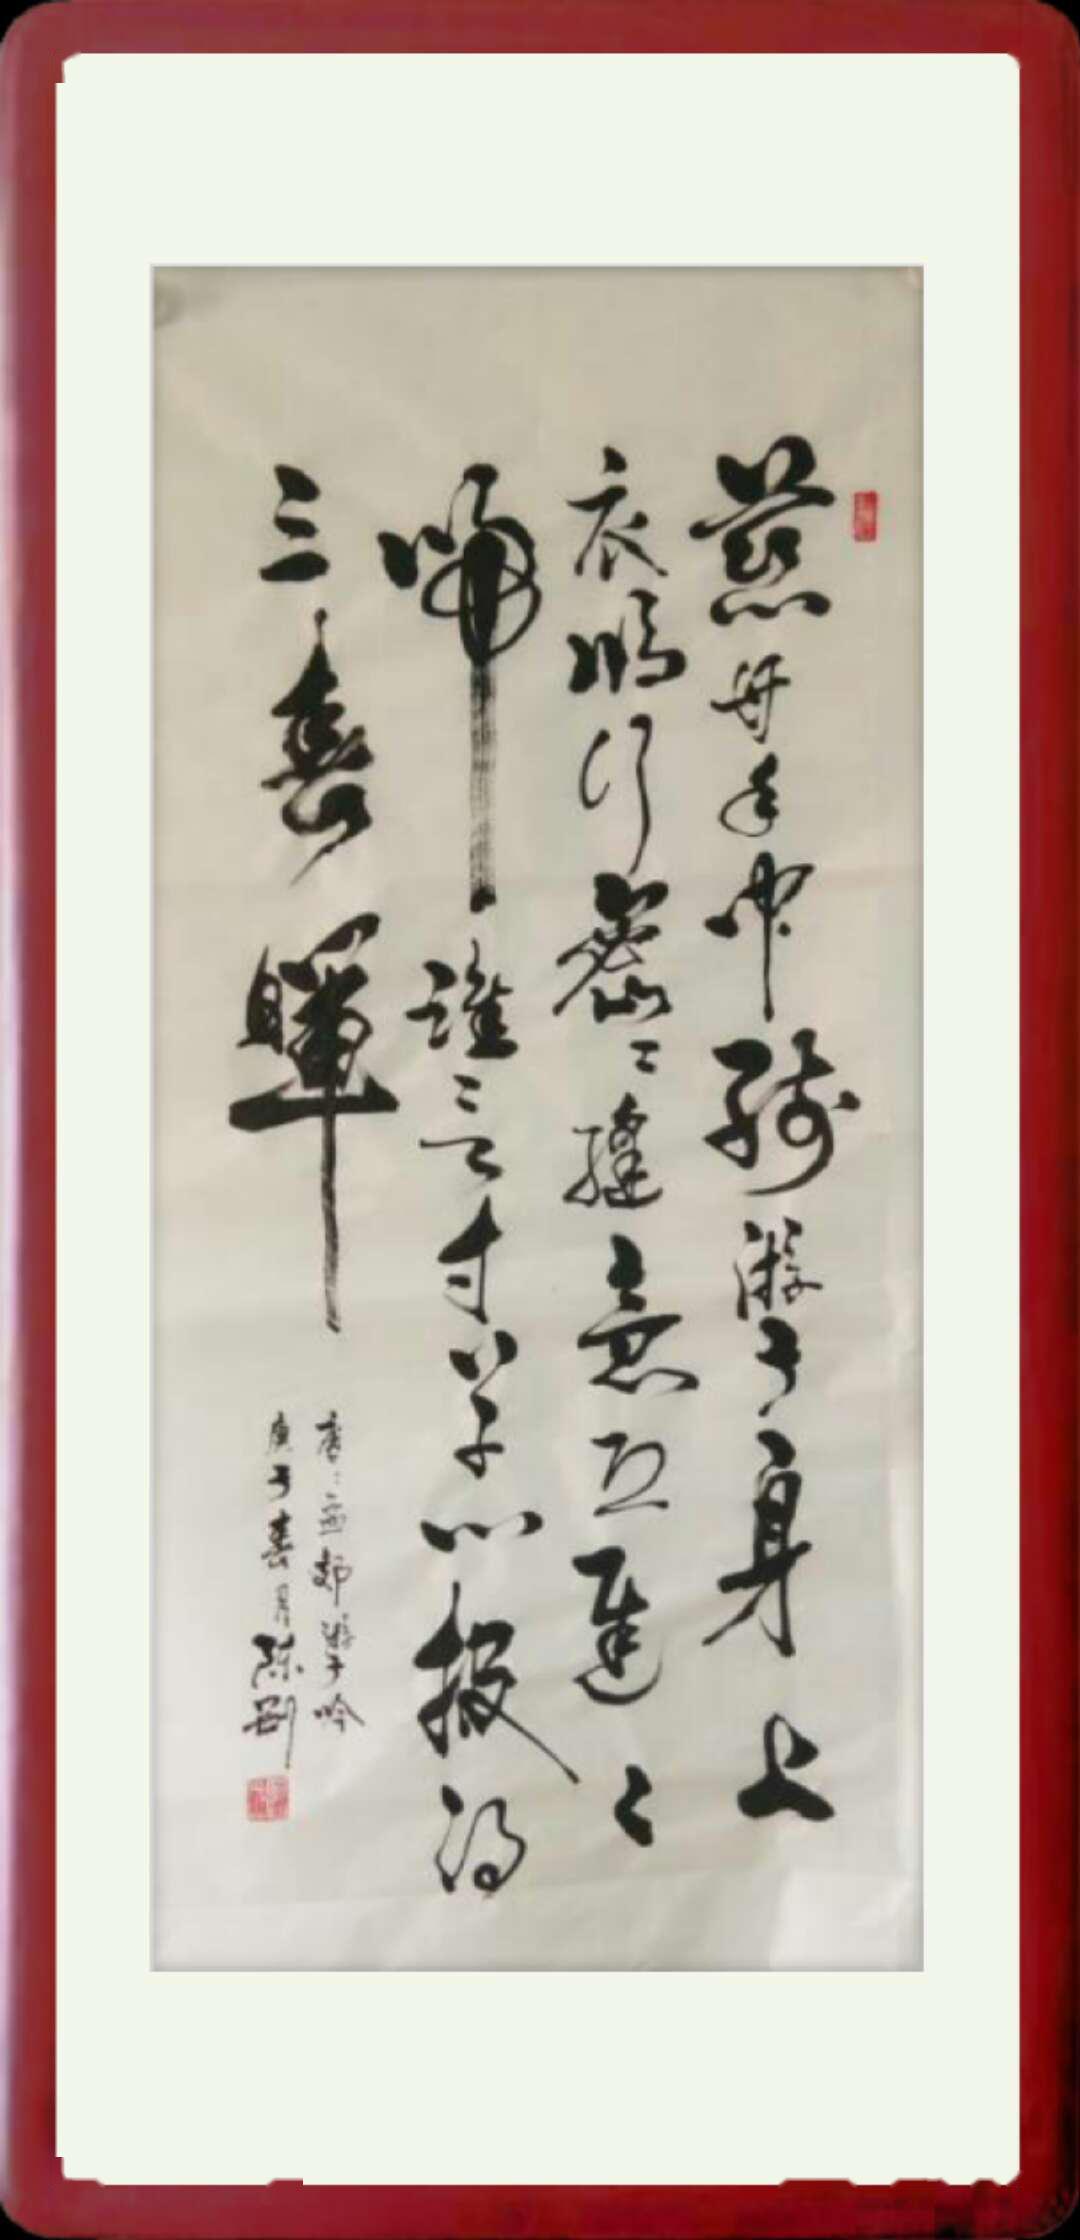 慈母手中綫游子身上
衣臨行密々縫意恐遲々
歸誰言寸草心報得
三春暉
唐：孟郊游子吟
庚子春月陈剛